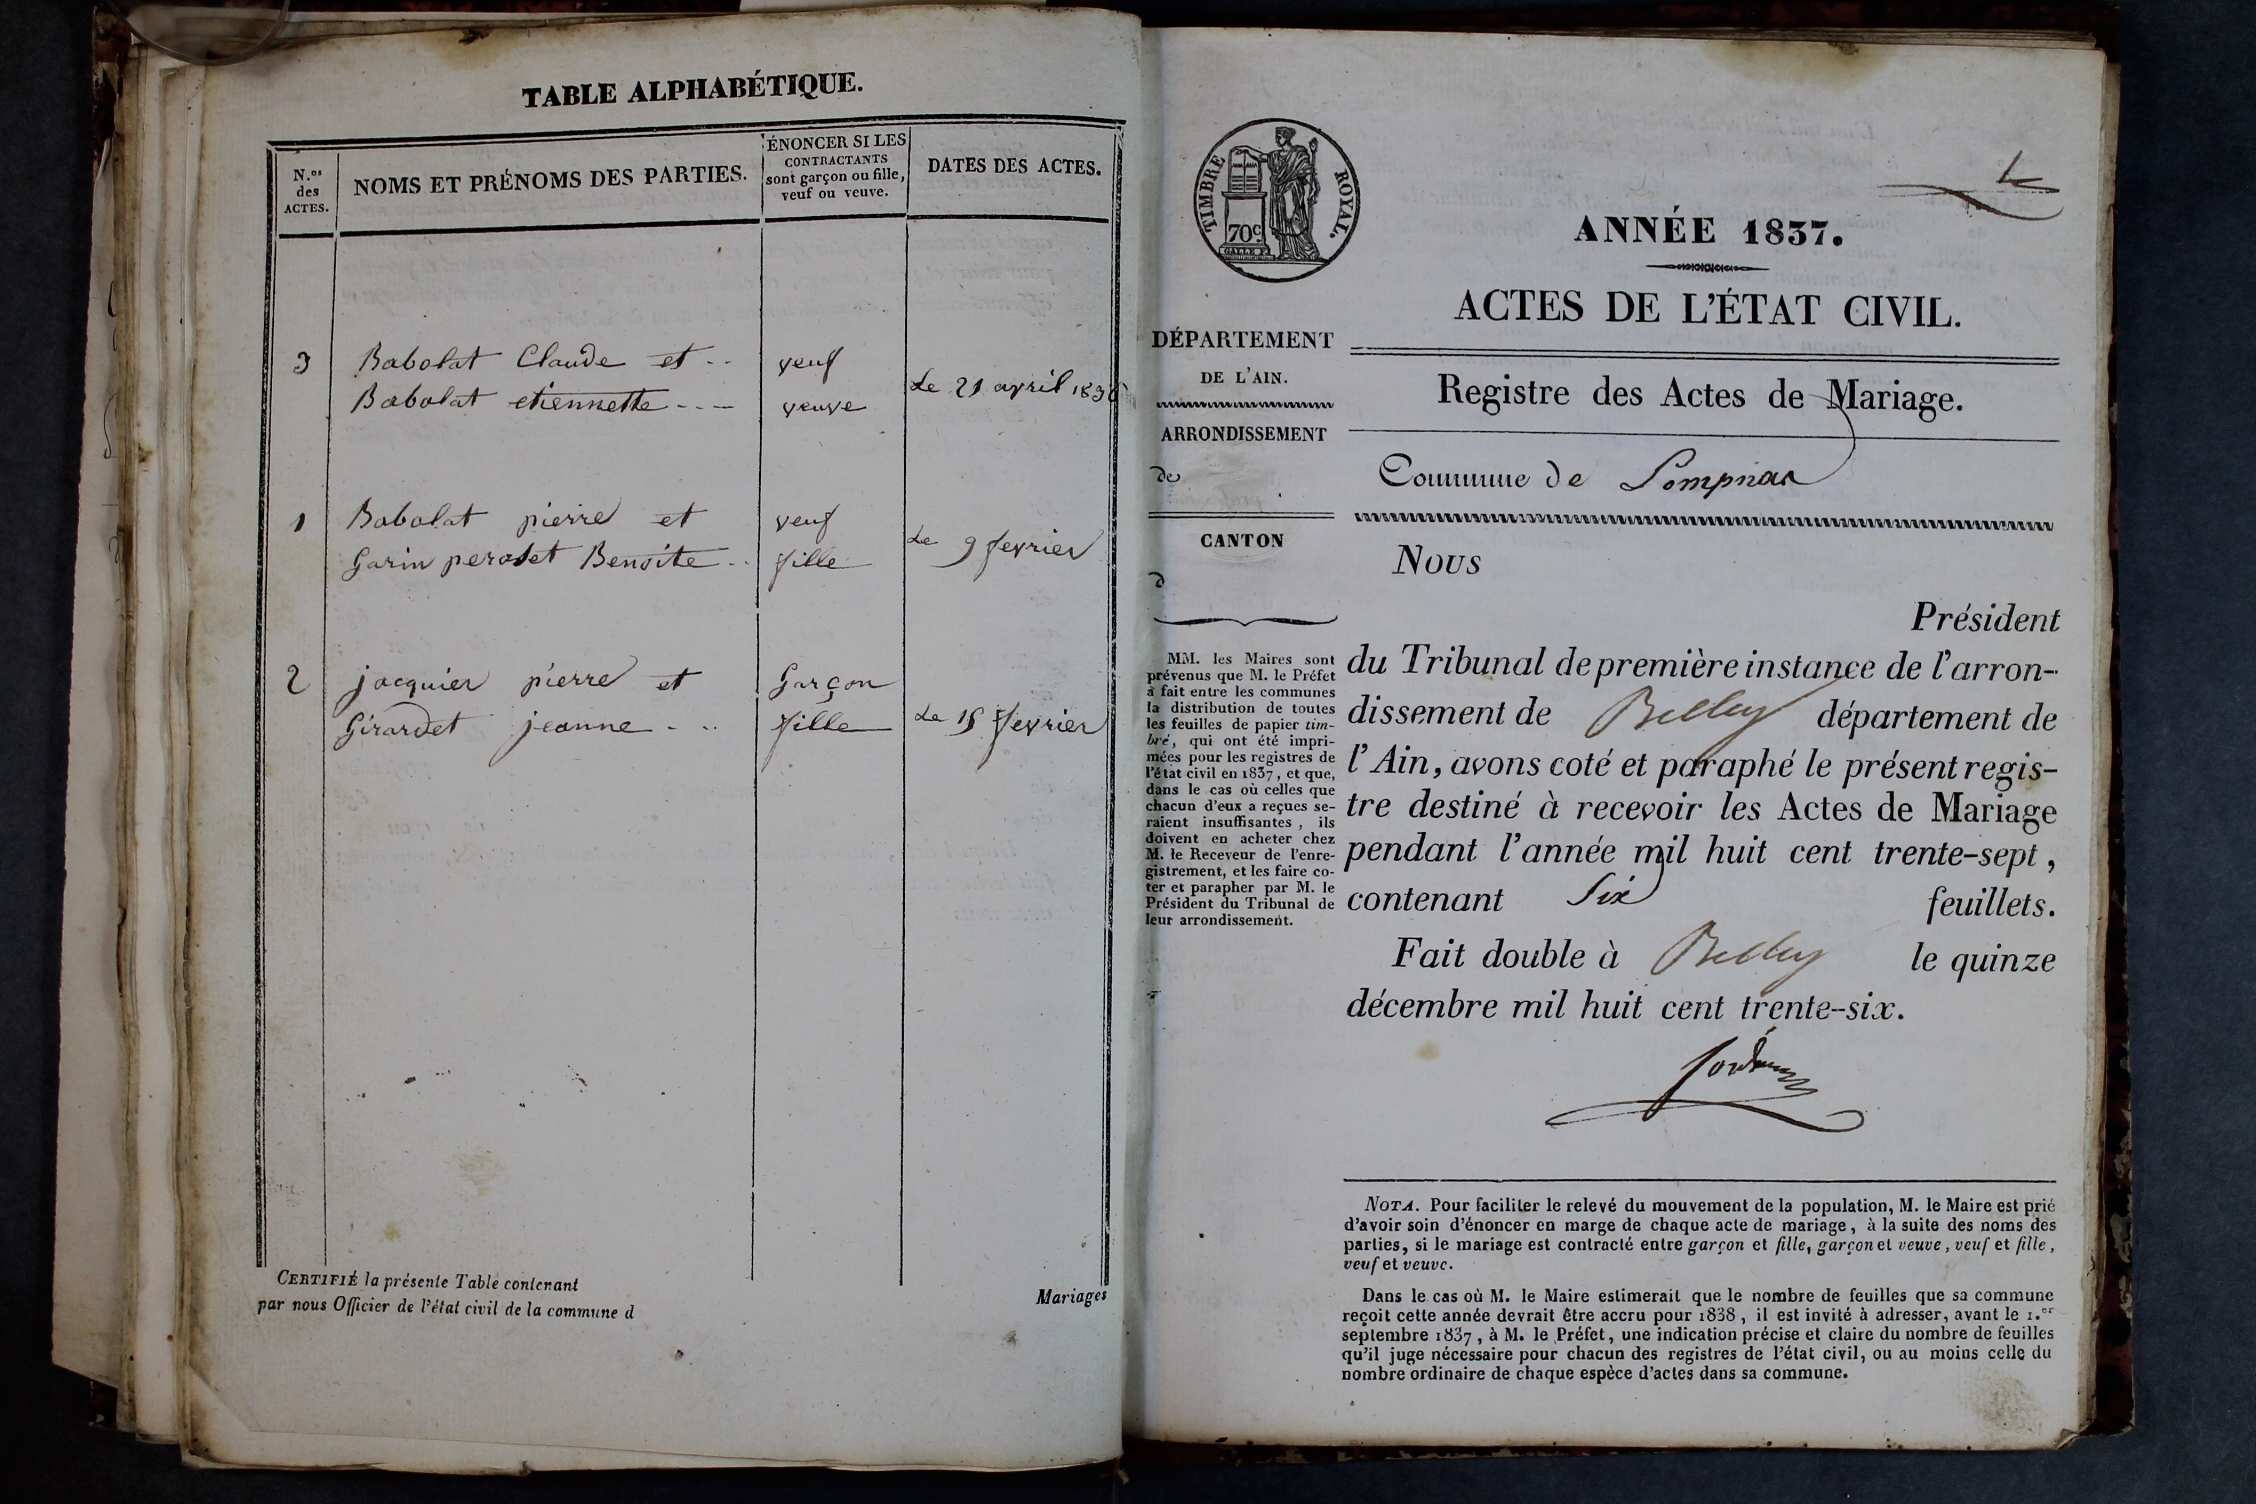 TABLE ALPHABÉTIQUE.
N.os des ACTES.
NOMS ET PRÉNOMS DES PARTIES.
ÉNONCER SI LES
CONTRACTANTS
sont garçon ou fille,
veuf ou veuve.
DATES DES ACTES.
3 Babolat Claude et .. veuf
Babolat etiennette - - - veuve
Le 21 avril 1836
1 Babolat pierre et veuf
Garin perolet Benoite .. fille
Le 9 fevrier
2 jacquier pierre et Garçon
Girardet jeanne - .. fille
Le 15 fevrier
CERTIFIÉ la présente Table contenant Mariages
par nous Officier de l'état civil de la commune d
TIMBRE ROYAL.
70c
ANNÉE 1837.
ACTES DE L'ÉTAT CIVIL.
DÉPARTEMENT
DE L'AIN.
ARRONDISSEMENT
de
CANTON
d
MM. les Maires sont
prévenus que M. le Préfet
a fait entre les communes
la distribution de toutes
les feuilles de papier tim-
bré, qui ont été impri-
mées pour les registres de
l'état civil en 1837, et que,
dans le cas où celles que
chacun d'eux a reçues se-
raient insuffisantes, ils
doivent en acheter chez
M. le Receveur de l'enre-
gistrement, et les faire co-
ter et parapher par M. le
Président du Tribunal de
leur arrondissement.
Registre des Actes de Mariage.
Commune de Lompnas
NOUS
Président
du Tribunal de première instance de l'arron-
dissement de Belley département de
l'Ain, avons coté et paraphé le présent regis-
tre destiné à recevoir les Actes de Mariage
pendant l'année mil huit cent trente-sept,
contenant Six feuillets.
Fait double à Belley le quinze
décembre mil huit cent trente-six.
NOTA. Pour faciliter le relevé du mouvement de la population, M. le Maire est prié
d'avoir soin d'énoncer en marge de chaque acte de mariage, à la suite des noms des
parties, si le mariage est contracté entre garçon et fille, garçon et veuve, veuf et fille,
veuf et veuve.
Dans le cas où M. le Maire estimerait que le nombre de feuilles que sa commune
reçoit cette année devrait être accru pour 1838, il est invité à adresser, avant le 1.er
septembre 1837, à M. le Préfet, une indication précise et claire du nombre de feuilles
qu'il juge nécessaire pour chacun des registres de l'état civil, ou au moins celle du
nombre ordinaire de chaque espèce d'actes dans sa commune.